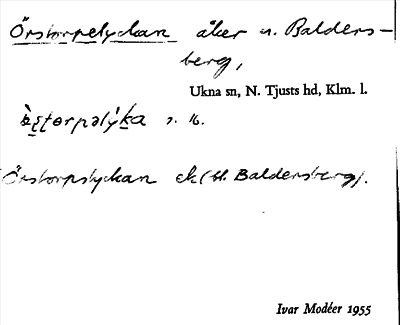 Örstorpelyckan åker n. Balders-
berg,
Ukna sn, N. Tjusts hd, Klm. l.
s. 16.
Örstorpslyckan ek (bl. Baldersberg).
Ivar Modéer 1955